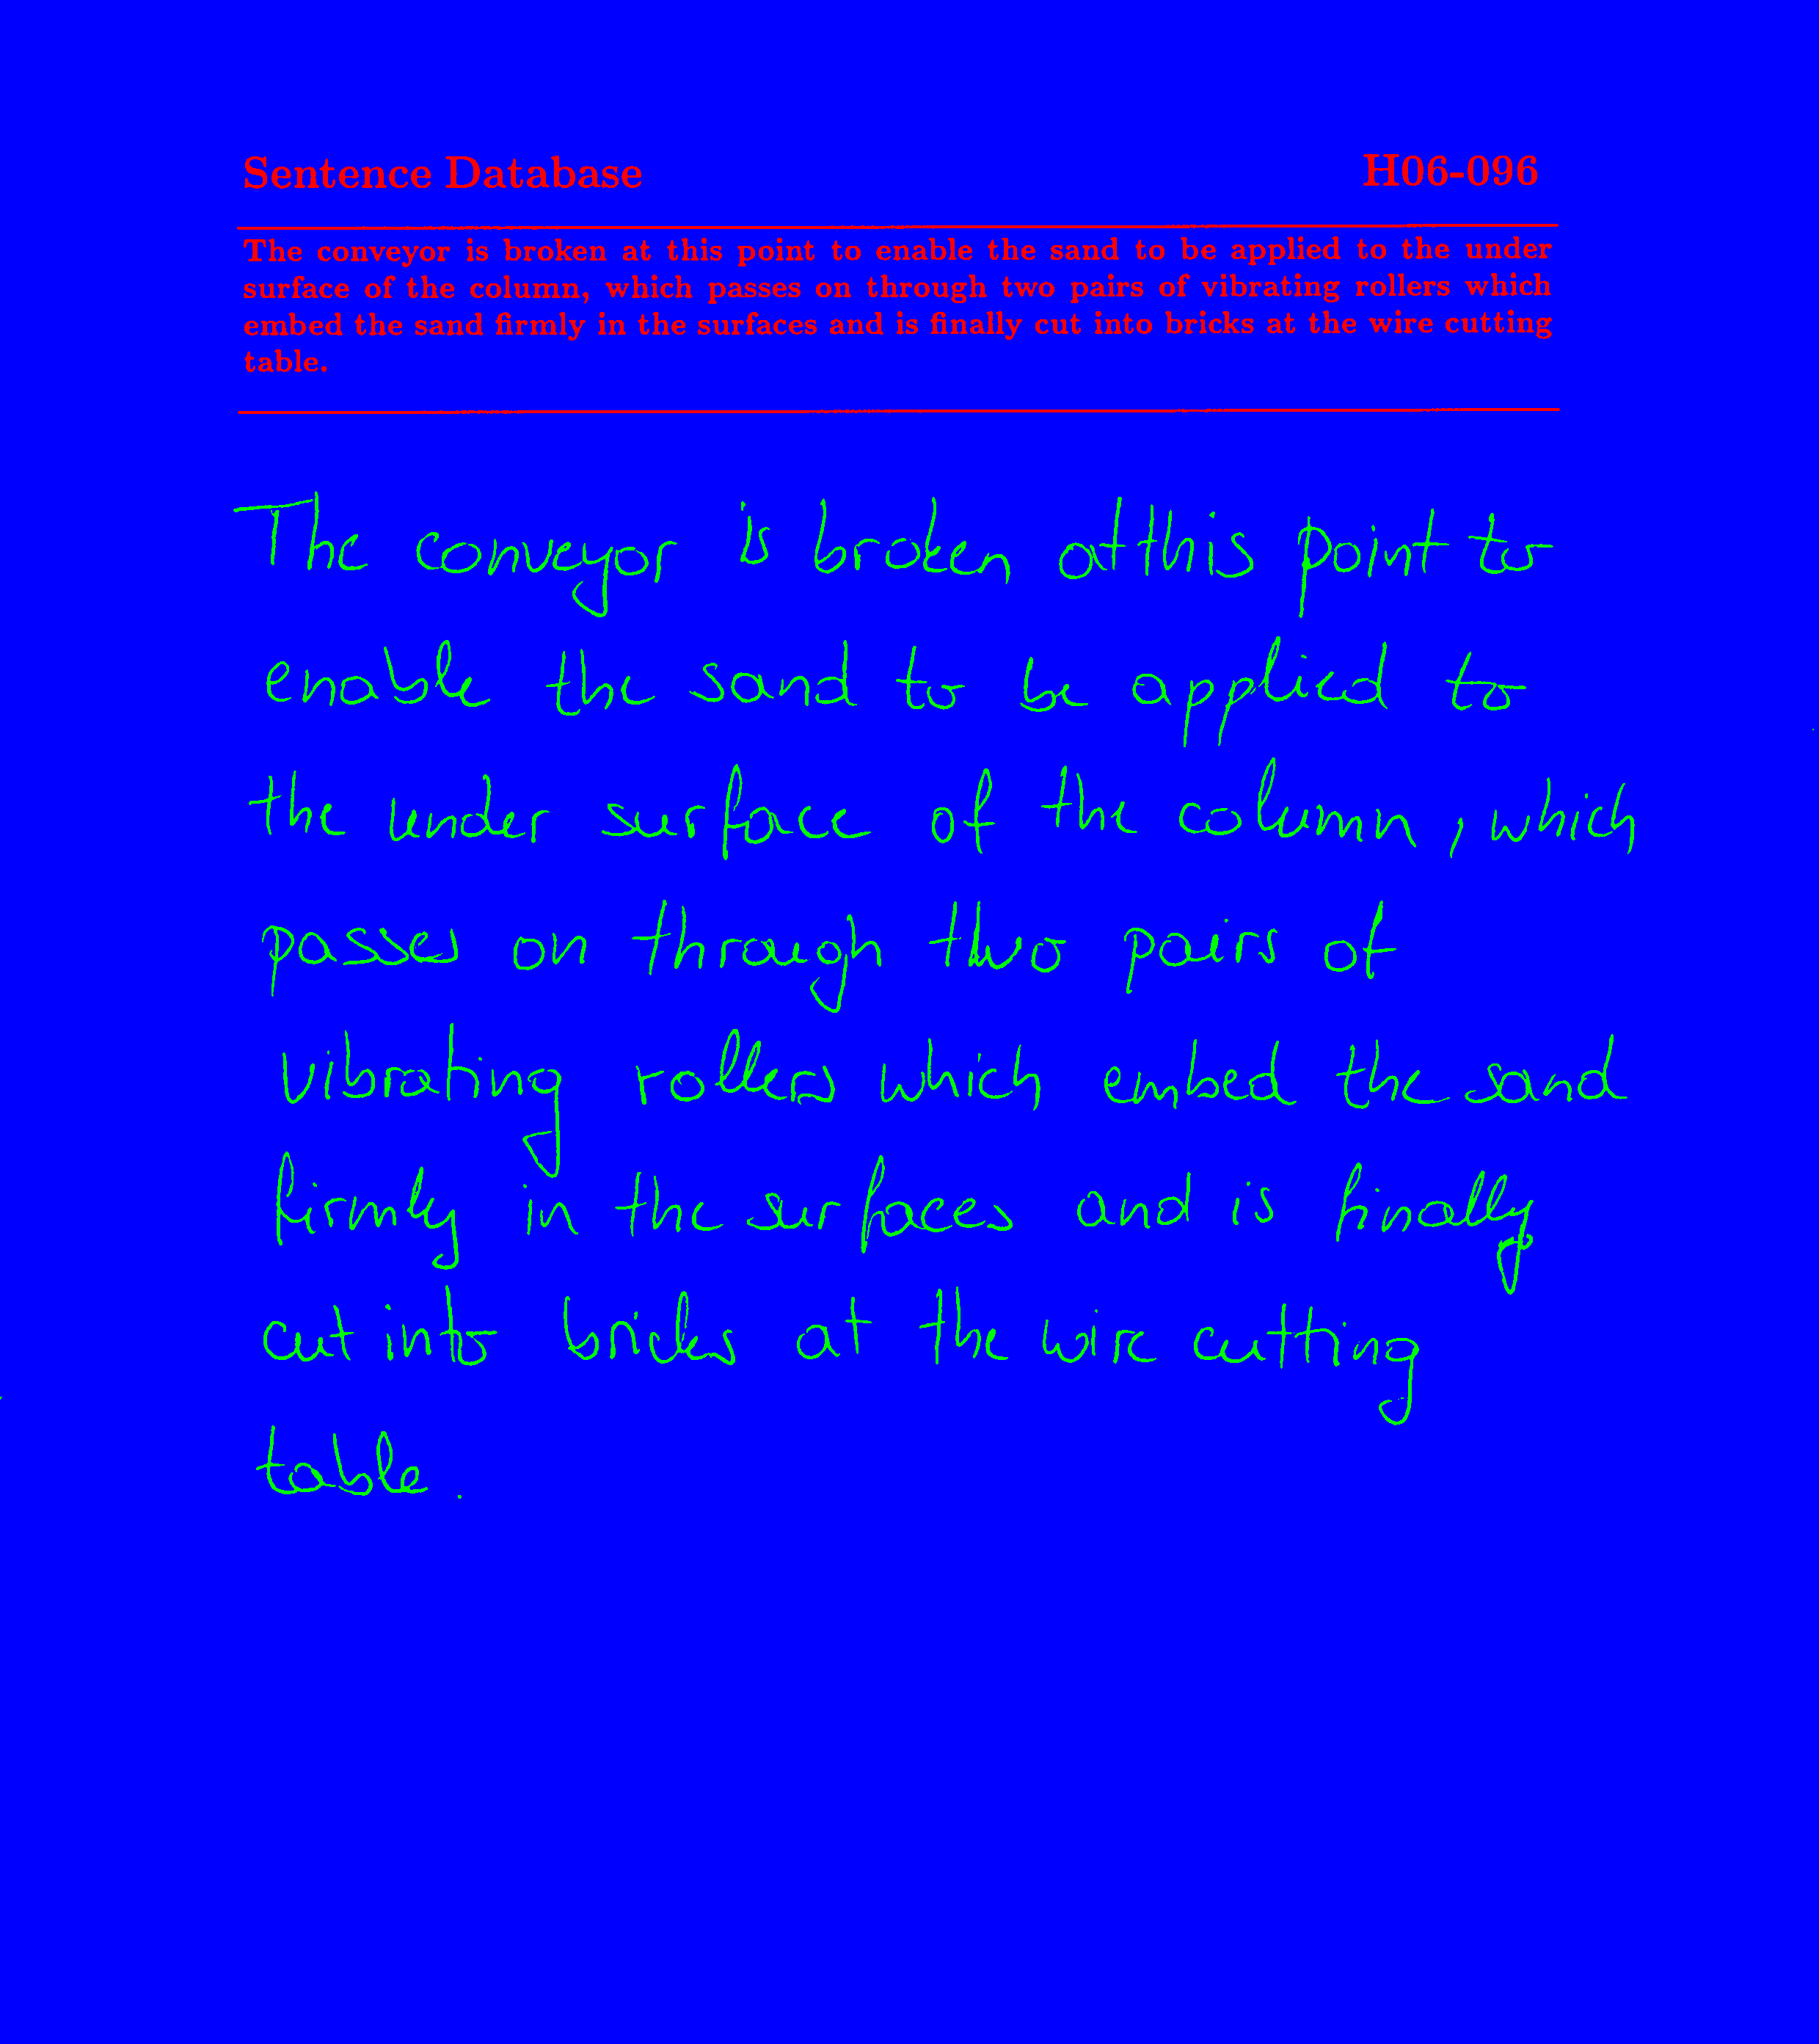 Sentence Database H06-096
The conveyor is broken at this point to enable the sand to be applied to the under
surface of the column, which passes on through two pairs of vibrating rollers which
embed the sand firmly in the surfaces and is finally cut into bricks at the wire cutting
table.
The conveyor is broken at this point to
enable the sand to be applied to
the under surface of the column, which
passes on through two pairs of
vibrating rollers which embed the sand
firmly in the surfaces and is finally
cut into bricks at the wire cutting
table.